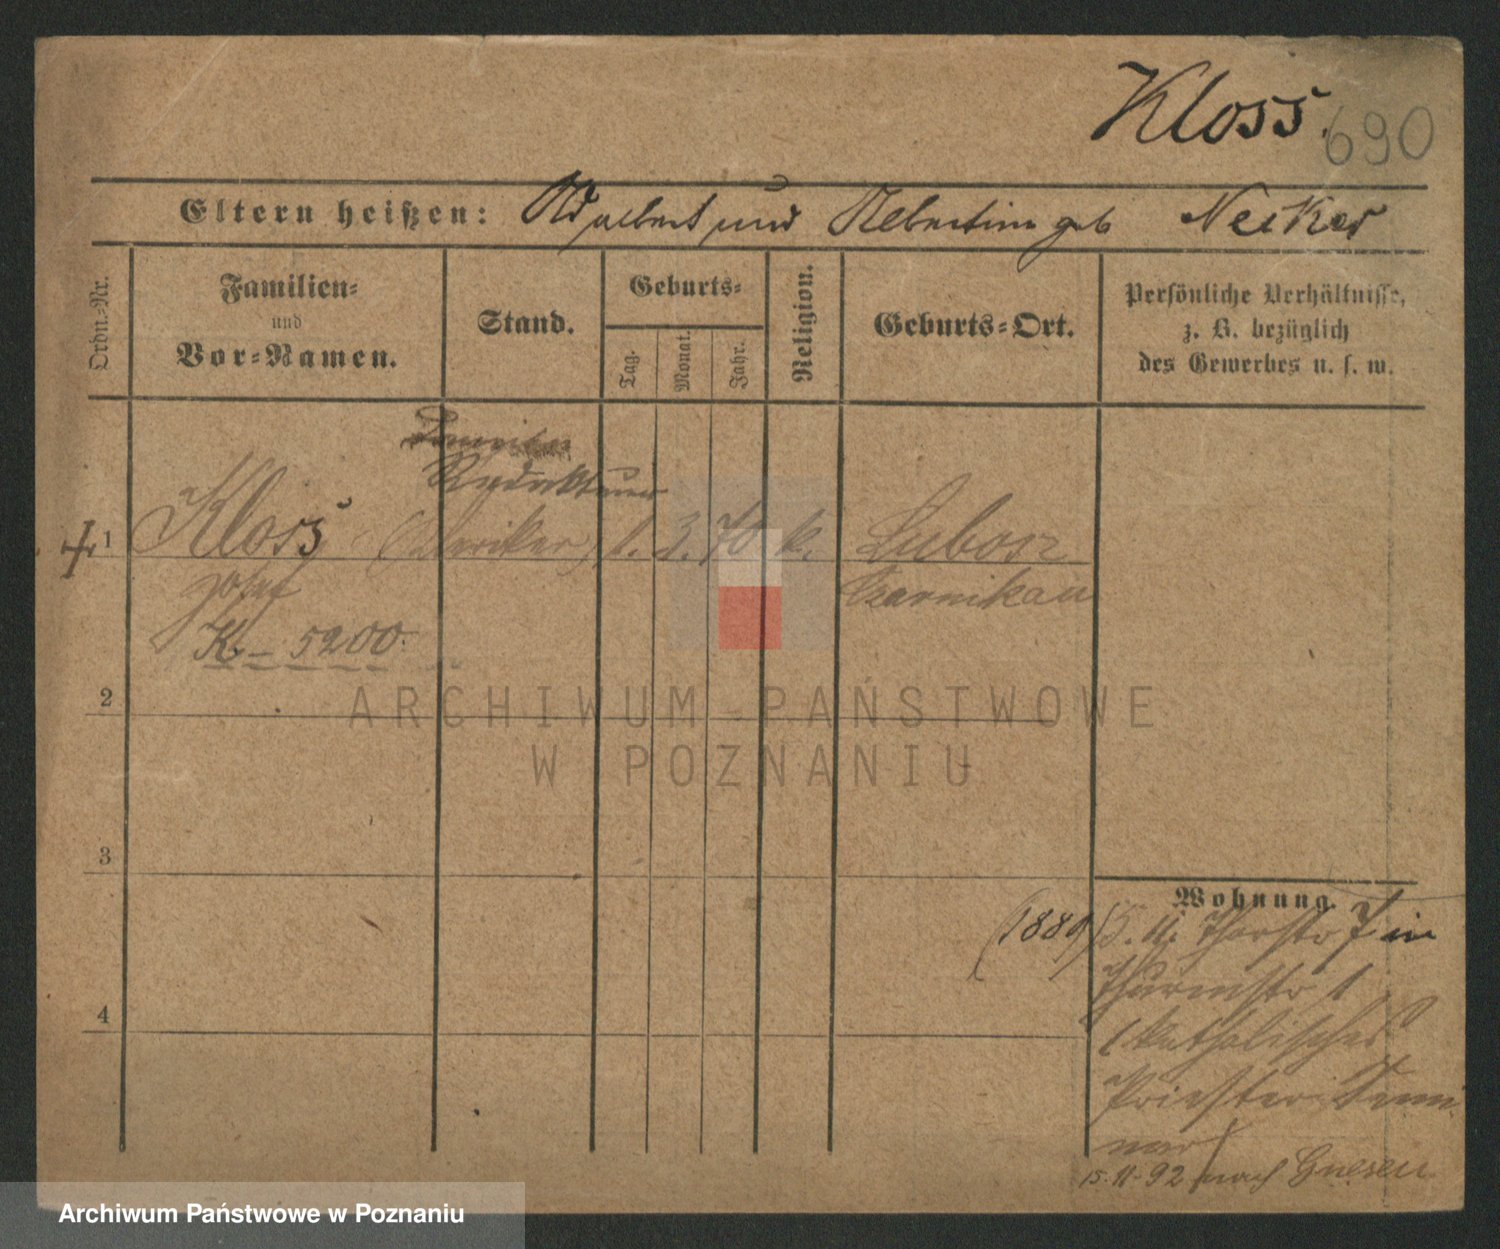 Kloss.
690
Eltern heißen: Adalbert und Albertine geb Neiker
Ordn.-Nr.
Familien-
und
Vor-Namen.
Stand.
Geburts-
Tag.
Monat.
Jahr.
Religion.
Geburts-Ort.
Persönliche Verhältnisse,
z. B. bezüglich
des Gewerbes u. s. w.
Redakteur
1 Kloss (Kleriker) 1. 3. 70 k. Lubosz
Josef
Czarnikau
K. – 5200.
2
ARCHIWUM PAŃSTWOWE
W POZNANIU
3
Wohnung.
(1889) 5. 11. Thorstr 7 in
Thurmstr 1
(katholisches
Priester Semi
nar)
4
15.11.92 nach Gnesen
Archiwum Państwowe w Poznaniu